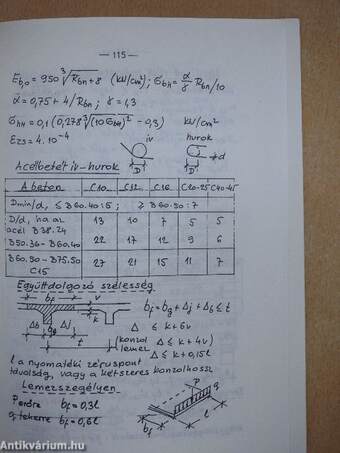 — 115 —
E_b,o = 950 ∛R_bn+8 (kN/cm²); σ_bH = α/γ R_bn/10
α = 0,75 + 4/R_bn ; γ = 1,3
σ_hH = 0,1 (0,278 ∛(10 σ_bH)² − 0,3) kN/cm²
εzs = 4.10⁻⁴ ív hurok
D D d
Acélbetét ív-hurok
A beton C10 C12 C16 C20-25 C40-45
Dmin/d, ≤ B60.40:5 ; ≥ B60.50:7
D/d, ha az acél B38.24 13 10 7 5 5
B50.36 - B60.40 22 17 12 9 6
B60.50 - B75.50 C15 27 21 15 11 7
Együttdolgozó szélesség
b_f v b_f = b_g + Δj + Δb ≤ t
k Δ ≤ k + 6v
Δb Δj (konzol lemez Δ ≤ k + 4v)
t Δ ≤ k + 0,15l
l a nyomatéki zéruspont
távolság, vagy a kétszeres konzolhossz
Lemezszegélyen
P-erőre b_f = 0,3l
q teherre b_f = 0,6l
P q l b_f
Antikvárium.hu